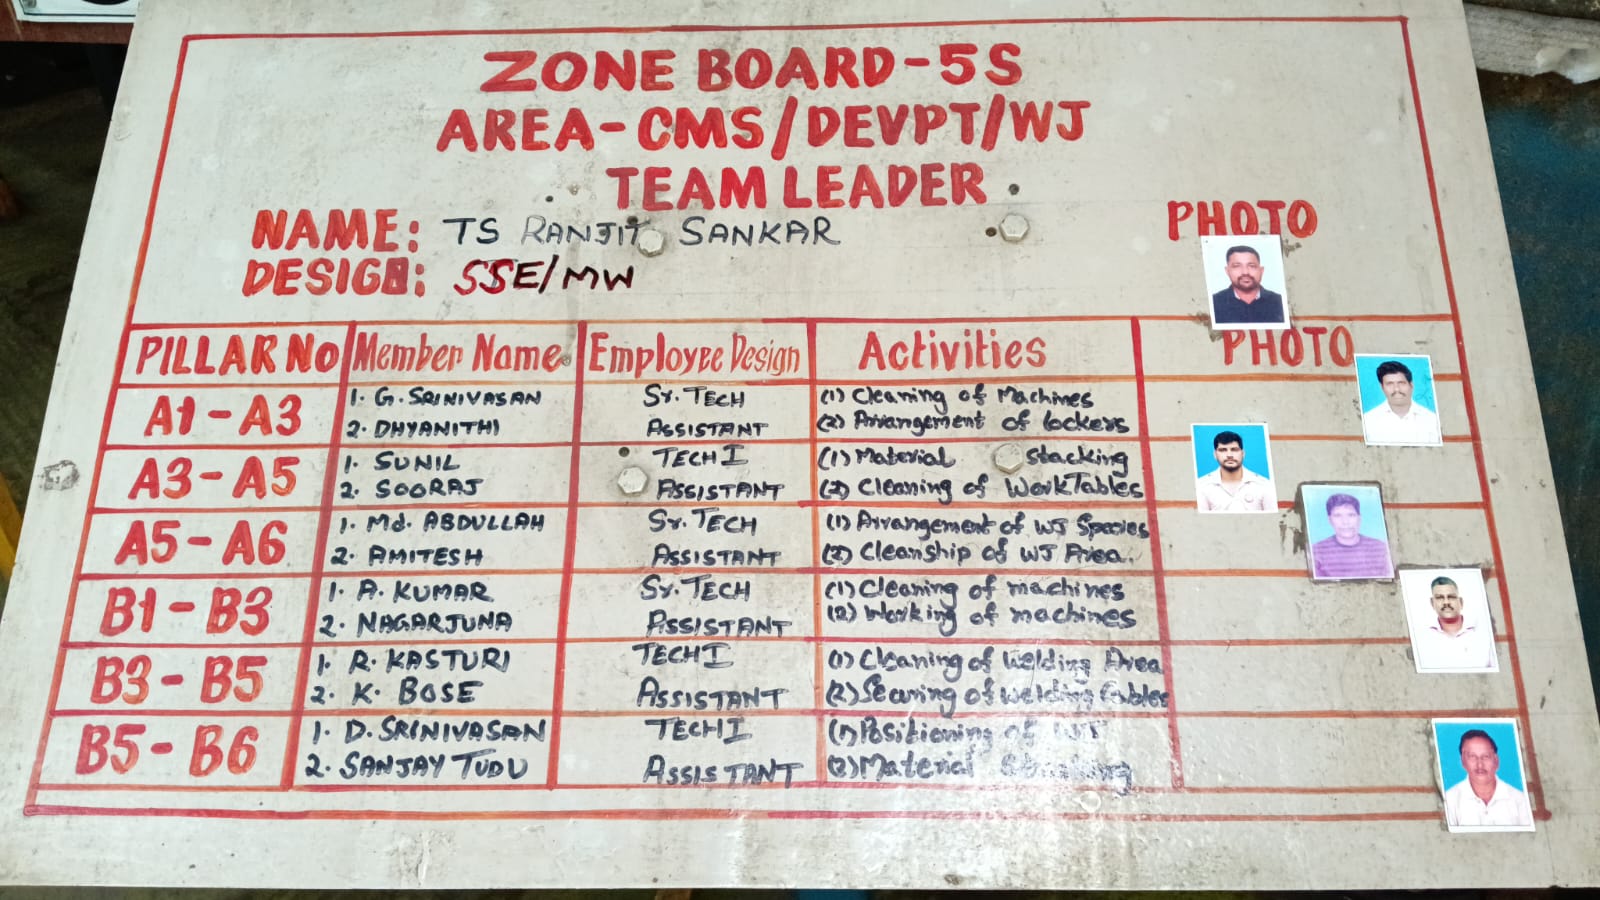 ZONE BOARD-5S
AREA-CMS/DEVPT/WJ
TEAM LEADER
NAME: TS RANJIT SANKAR
PHOTO
DESIGN: SSE/MW
PILLAR No Member Name Employee Design Activities PHOTO
A1-A3 1. G. SRINIVASAN Sr. TECH (1) Cleaning of Machines
2. DHYANITHI ASSISTANT (2) Arrangement of lockers
A3-A5 1. SUNIL TECH I (1) Material stacking
2. SOORAJ ASSISTANT (2) Cleaning of Work Tables
A5-A6 1. Md. ABDULLAH Sr. TECH (1) Arrangement of WJ Species
2. AMITESH ASSISTANT (2) Cleanship of WJ Area.
B1-B3 1. A. KUMAR Sr. TECH (1) Cleaning of machines
2. NAGARJUNA ASSISTANT (2) Working of machines
B3-B5 1. R. KASTURI TECH I (1) Cleaning of Welding Area
2. K. BOSE ASSISTANT (2) Securing of welding Cables
B5-B6 1. D. SRINIVASAN TECH I (1) Positioning of WJ
2. SANJAY TUDU ASSISTANT (2) Material